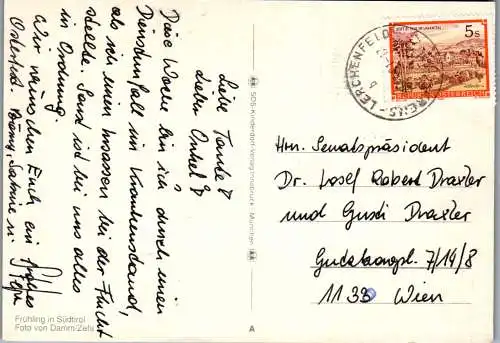 Liebe Tante &
lieber Onkel!
Diese Woche bin ich durch einen
Dienstunfall im Krankenstand,
als sich einen Insassen bei der Flucht
stellte. Sonst ist bei uns alles
in Ordnung.
Wir wünschen Euch ein frohes
Osterfest.
Frühling in Südtirol
Foto von Damm/Zefa
SOS-Kinderdorf-Verlag Innsbruck · München
A
LERCHENFELD
5s
REPUBLIK ÖSTERREICH
Hrn. Senatspräsident
Dr. Josef Robert Draxler
und Gusti Draxler
7/14/8
1133 Wien